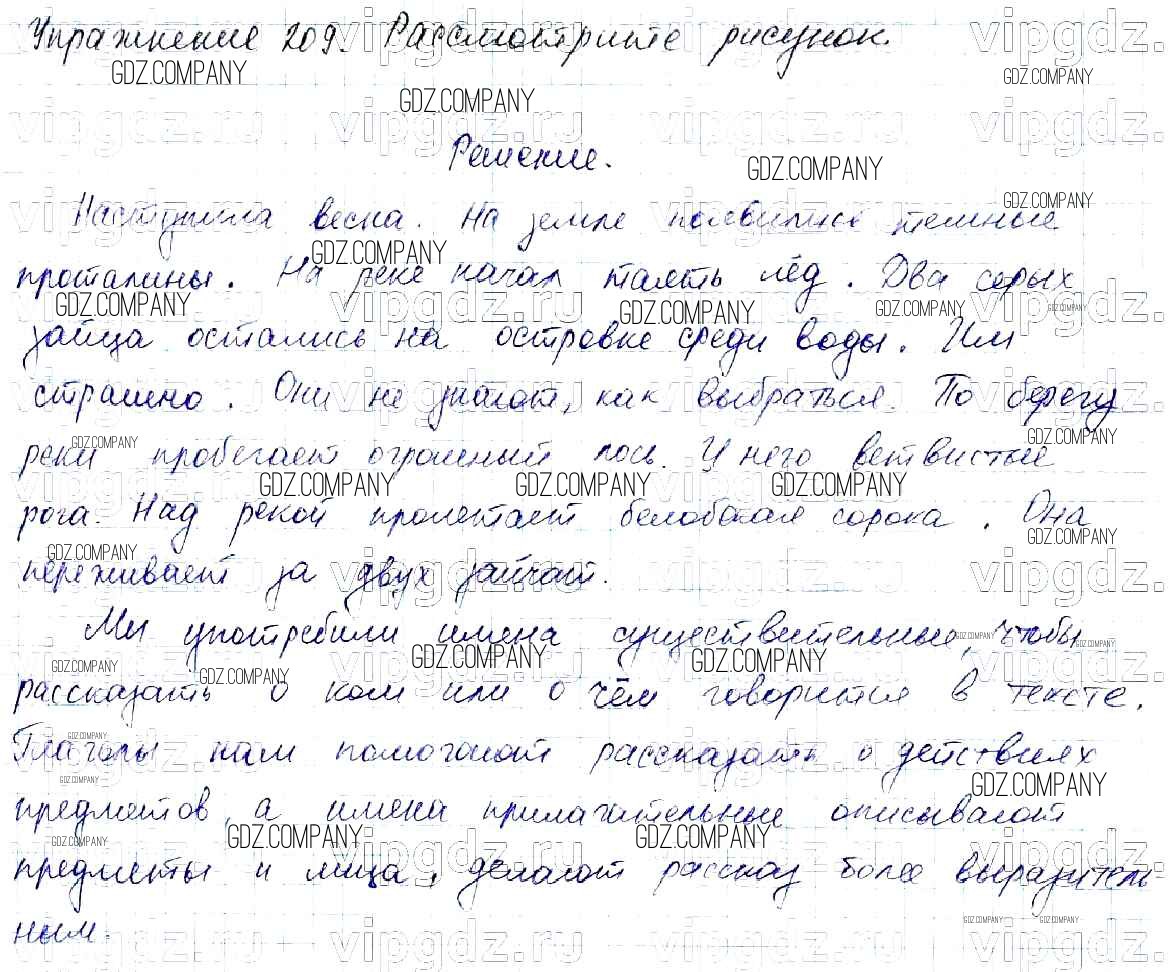 Упражнение 209. Рассмотрите рисунок.
Решение.
Наступила весна. На земле появились темные
проталины. На реке начал таять лёд. Два серых
зайца остались на островке среди воды. Им
страшно. Они не знают, как выбраться. По берегу
реки пробегает огромный лось. У него ветвистые
рога. Над рекой пролетает белобокая сорока. Она
переживает за двух зайчат.
Мы употребили имена существительные, чтобы
рассказать о ком или о чём говорится в тексте.
Глаголы нам помогают рассказать о действиях
предметов, а имена прилагательные описывают
предметы и лица, делают рассказ более выразитель
ным.